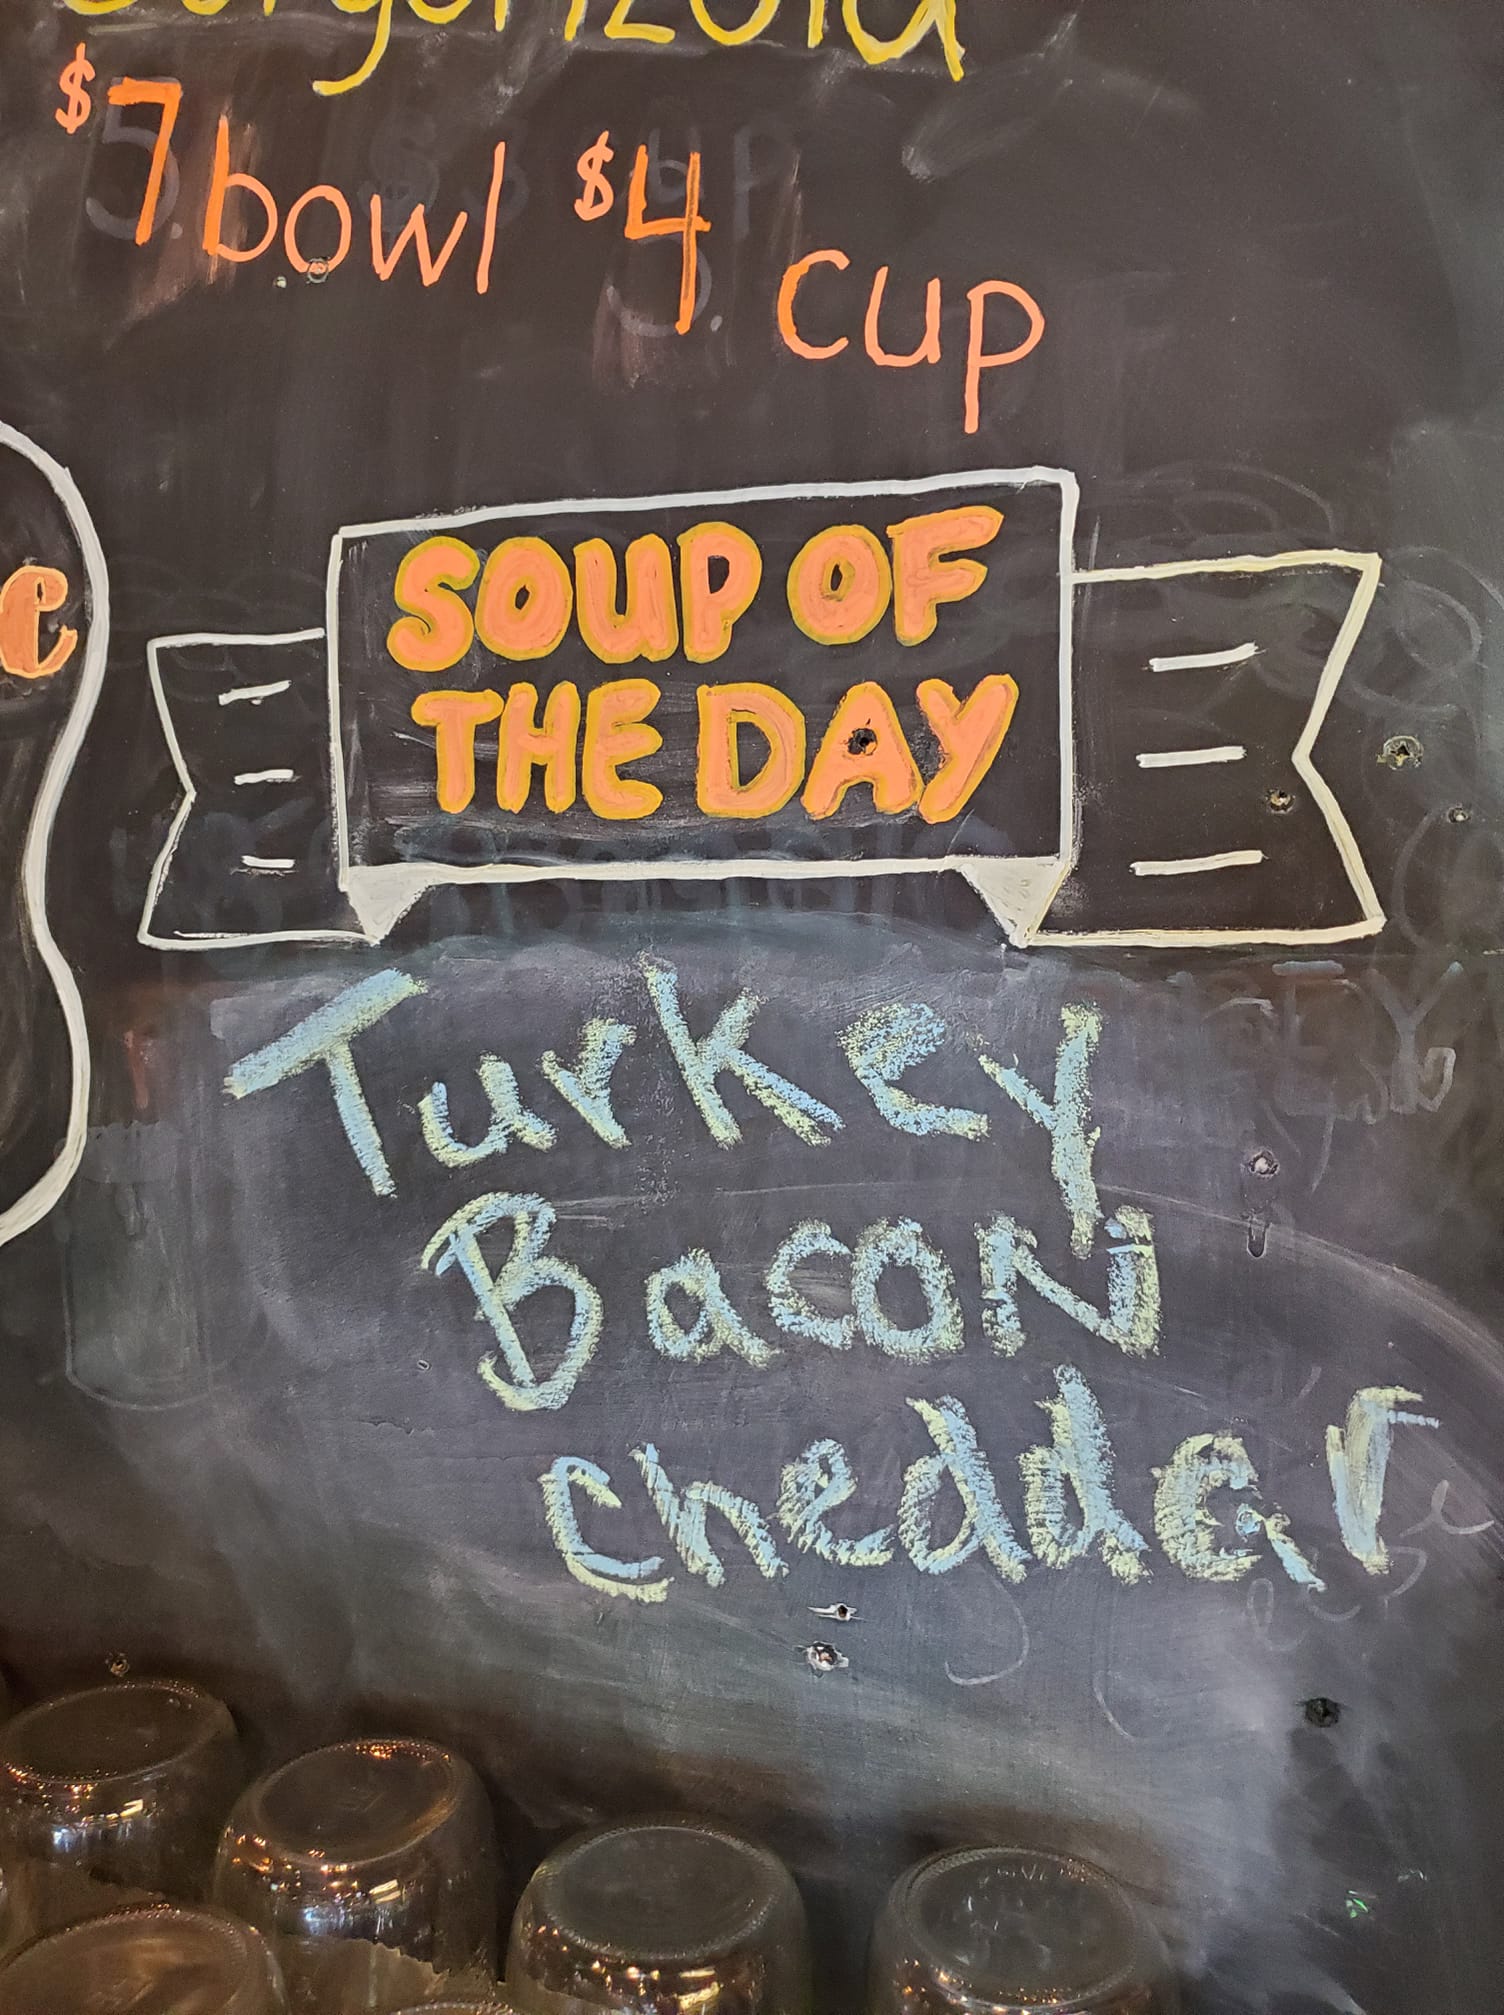 $7 bowl $4 cup
SOUP OF
THE DAY
Turkey
Bacon
cheddar